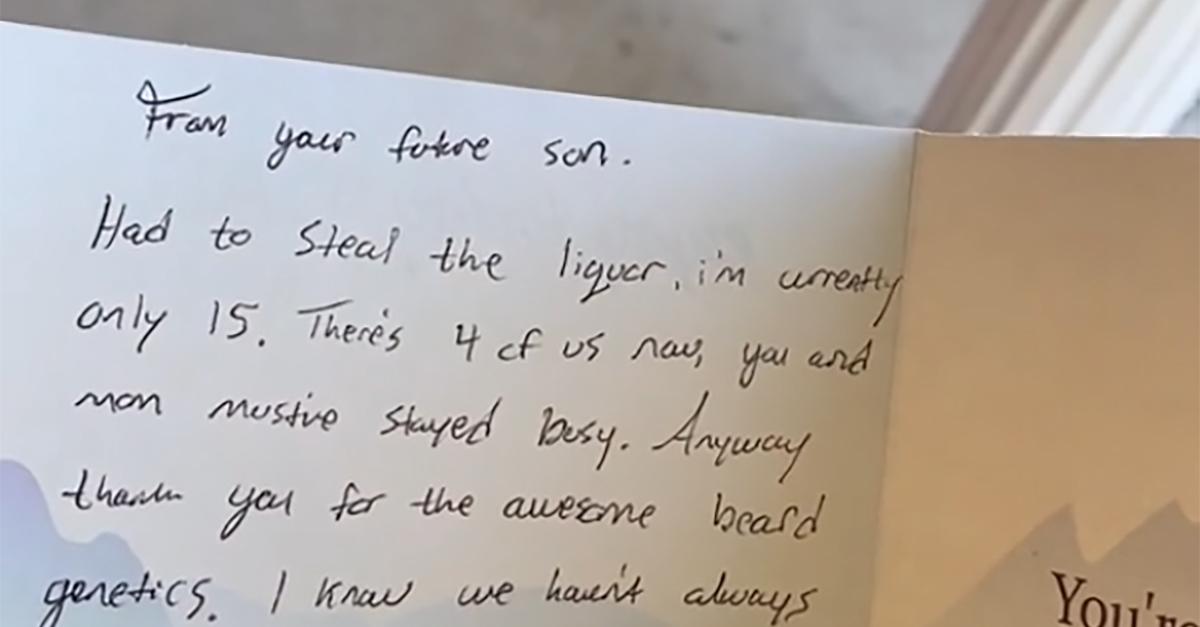 From your future son.
Had to steal the liquor, i'm currently
only 15. There's 4 of us now, you and
mom must've stayed busy. Anyway
thank you for the awesome beard
genetics. I know we haven't always
You're